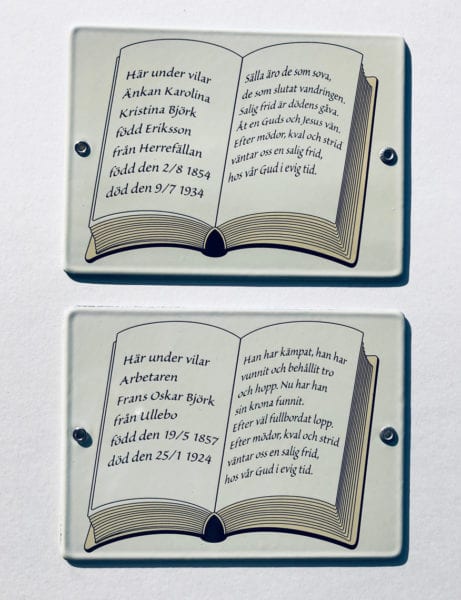 Här under vilar
Änkan Karolina
Kristina Björk
född Eriksson
från Herrefällan
född den 2/8 1854
död den 9/7 1934
Sälla äro de som sova,
de som slutat vandringen.
Salig frid är dödens gåva.
Åt en Guds och Jesus vän.
Efter mödor, kval och strid
väntar oss en salig frid,
hos vår Gud i evig tid.
Här under vilar
Arbetaren
Frans Oskar Björk
från Ullebo
född den 19/5 1857
död den 25/1 1924
Han har kämpat, han har
vunnit och behållit tro
och hopp. Nu har han
sin krona funnit.
Efter väl fullbordat lopp.
Efter mödor, kval och strid
väntar oss en salig frid,
hos vår Gud i evig tid.